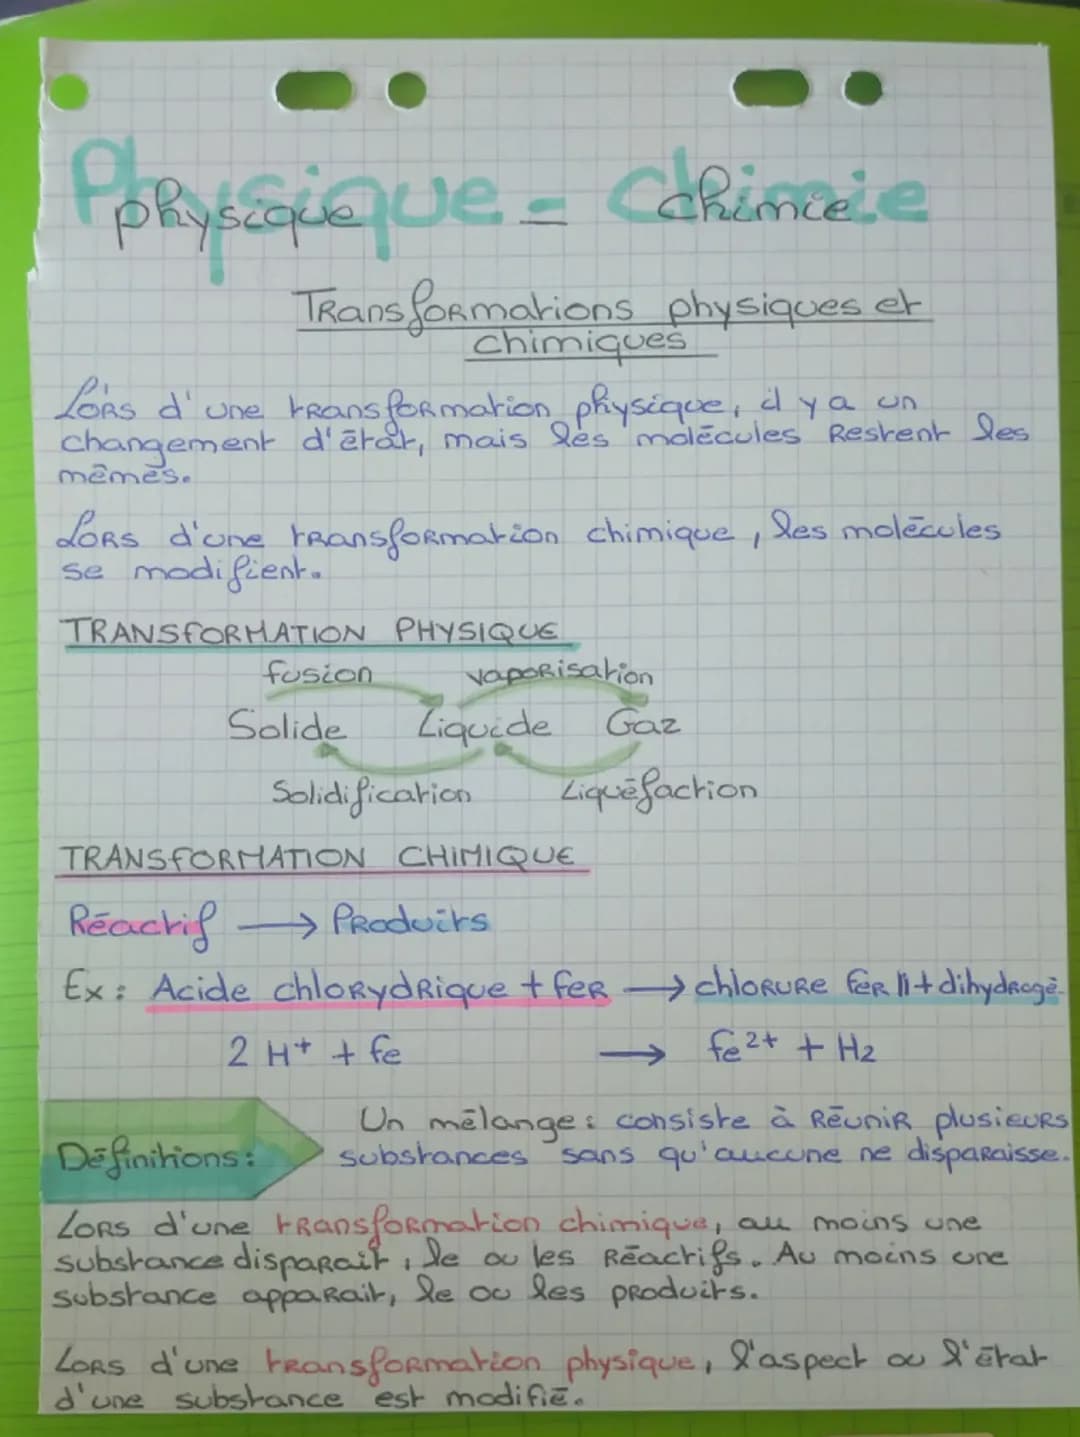 Physique - Chimie
physique - chimie
Transformations physiques et
chimiques
Lors d'une transformation physique, il y a un
changement d'état, mais les molécules Restent les
mêmes.
Lors d'une transformation chimique, les molécules
se modifient.
TRANSFORMATION PHYSIQUE
fusion vaporisation
Solide Liquide Gaz
Solidification Liquéfaction
TRANSFORMATION CHIMIQUE
Réactif → Produits
Ex : Acide chlorydrique + fer → chlorure fer II + dihydrogè
2 H+ + fe → fe 2+ + H2
Un mélange : consiste à Réunir plusieurs
Définitions : substances sans qu'aucune ne disparaisse.
Lors d'une transformation chimique, au moins une
substance disparait, le ou les Réactifs. Au moins une
substance apparait, le ou les produits.
Lors d'une transformation physique, l'aspect ou l'état
d'une substance est modifié.